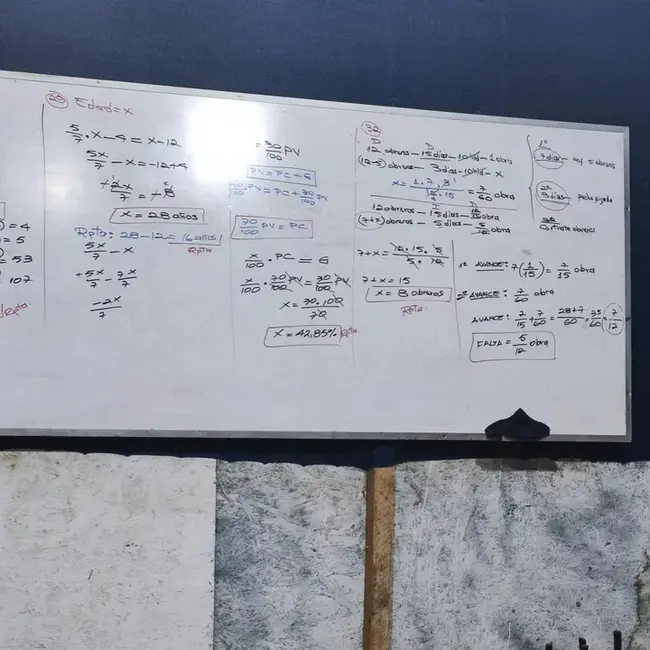 ) = 4
= 5
= 53
107
29 Edad = x
5/7 · x - 4 = x - 12
5x/7 - x = -12 + 4
x = 28 años
Rpta: 28 - 12 = 16 años
Rpta
5x/7 - x
5x/7 - 7x/7
-2x/7
= 30/100 PV
PV = PC + G
PV = PC + 30/100 PV
70/100 PV = PC
x/100 · PC = G
x/100 · 70/100 PV = 30/100 PV
x = 30.100/70
x = 42,85% Rpta
32
D D
12 obreros - 15 días - - 1 obra
(12-5) obreros - 3 días - - x
= 7/60 obra
12 obreros - 15 días - 12/12 obra
(7+x) obreros - 5 días - 5/12 obra
7 + x = 12 . 15 . 5 / 5 . 12
7 + x = 15
x = 8 obreros
Rpta
1º
7 días - 5 obreros
2º
3 días -
obreros
1º AVANCE: 7(1/15) = 7/15 obra
2º AVANCE: 7/60 obra
AVANCE: 7/15 + 7/60 = 28+7/60 = 35/60 = 7/12
FALTA = 5/12 obra